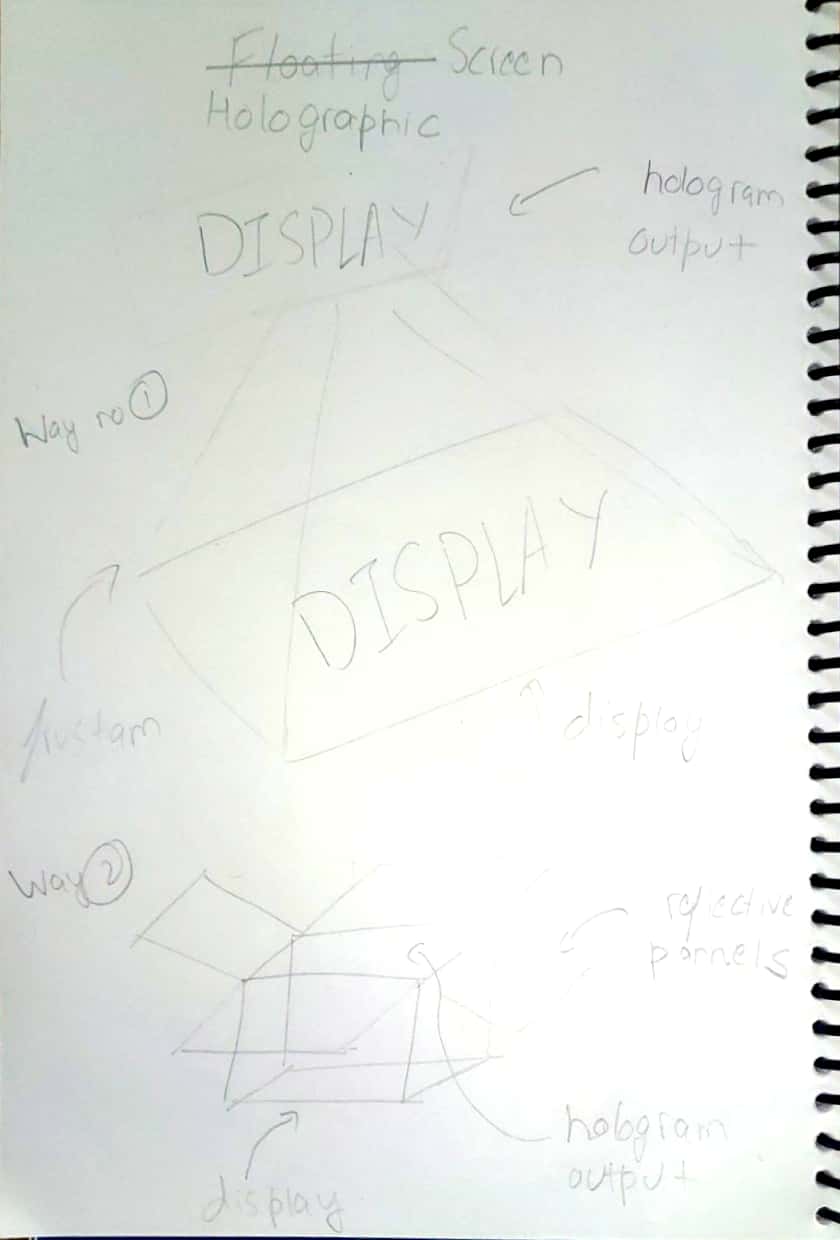 Floating Screen
Holographic
hologram
output
DISPLAY
Way no 1
DISPLAY
frustam
display
Way 2
reflective
pannels
hologram
output
display